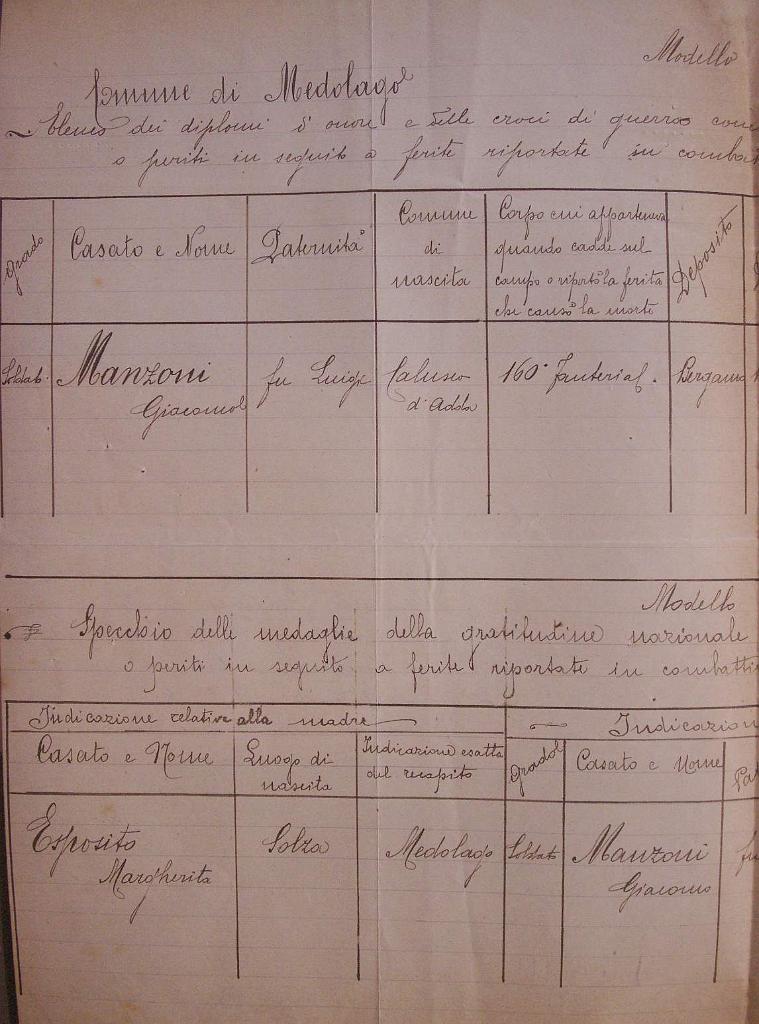 Modello
Comune di Medolago
Elenco dei diplomi d'onore e delle croci di guerra
o periti in seguito a ferite riportate in
grado
Casato e Nome
Paternità
Comune
di
nascita
Corpo cui apparteneva
quando cadde sul
campo o riportò la ferita
che causò la morte
Deposito
Soldato
Manzoni
Giacomo
fu Luigi
Calusco
d'Adda
160° Fanteria
Bergamo
Modello
Specchio delle medaglie della gratitudine nazionale
o periti in seguito a ferite riportate in
Indicazione relative alla madre
Casato e Nome
Luogo di
nascita
Indicazione esatta
del recapito
grado
Casato e Nome
Esposito
Margherita
Solza
Medolago
Soldato
Manzoni
Giacomo